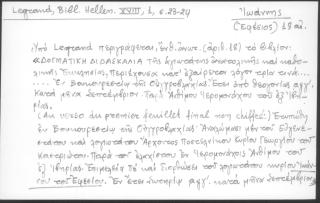 Legrand, Bibl. Hellen. XVIII, 1, σ. 23-24
Ἰωάννης
(Ἐφέσιος) 18 αἰ.
Ὑπὸ Legrand περιγράφεται, (ἀριθ. 18) τὸ βιβλίον:
«ΔΟΓΜΑΤΙΚΗ ΔΙΔΑΣΚΑΛΙΑ τῆς ἁγιωτάτης ἀποστολικῆς καὶ καθο-
λικῆς Ἐκκλησίας, Περιέχουσα κατ' ἐξαίρετον λόγον τρία
Ἐν Βουκουρεστίῳ τῆς Οὐγγροβλαχίας. Ἔτει ἀπὸ Θεογονίας αψγ'.
Κατὰ μῆνα Σεπτέμβριον. Παρὰ Ἀνθίμου Ἱερομονάχου τοῦ ἐξ Ἰβη-
ρίας.
(Au verso du premier feuillet final non chiffré): Ἐτυπώθη
ἐν Βουκουρεστίῳ τῆς Οὐγγροβλαχίας: Ἀναλώμασι μὲν τοῦ εὐγενε-
στάτου καὶ λογιωτάτου Ἄρχοντος κυρίου Γεωργίου τοῦ
Καστριώτου. Παρὰ τοῦ ἐλαχίστου ἐν Ἱερομονάχοις Ἀνθίμου τοῦ
ἐξ Ἰβηρίας. Ἐπιμελείᾳ τε καὶ διορθώσει τοῦ λογιωτάτου κυρίου Ἰωάν-
νου τοῦ Ἐφεσίου. Ἐν ἔτει σωτηρίῳ αψγ'. κατὰ μῆνα Σεπτέμβριον.